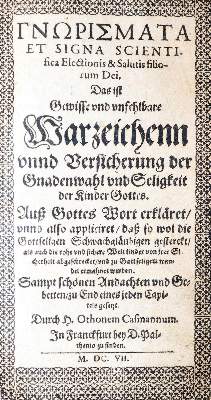 ΓΝΩΡΙΣΜΑΤΑ
ET SIGNA SCIENTI-
fica Electionis & Salutis filio-
rum Dei,
Das ist
Gewisse vnd vnfehlbare
Warzeichenn
vnnd Versicherung der
Gnadenwahl vnd Seligkeit
der Kinder Gottes.
Auß Gottes Wort erkläret/
vnnd also appliciret/ daß so wol die
Gottseligen Schwachgläubigen gestercket/
als auch die rohe vnd sichere Welt kinder von jrer Si-
cherheit abgeschrecket/ vnd zu Gottseligem wan-
del ermahnet werden.
Sampt schönen Andachten vnd Ge-
betten zu End eines jeden Capi-
tels gesetzt.
Durch H. Othonem Casmannum.
In Franckfurt bey D. Pal-
thenio zu finden.
M. DC. VII.